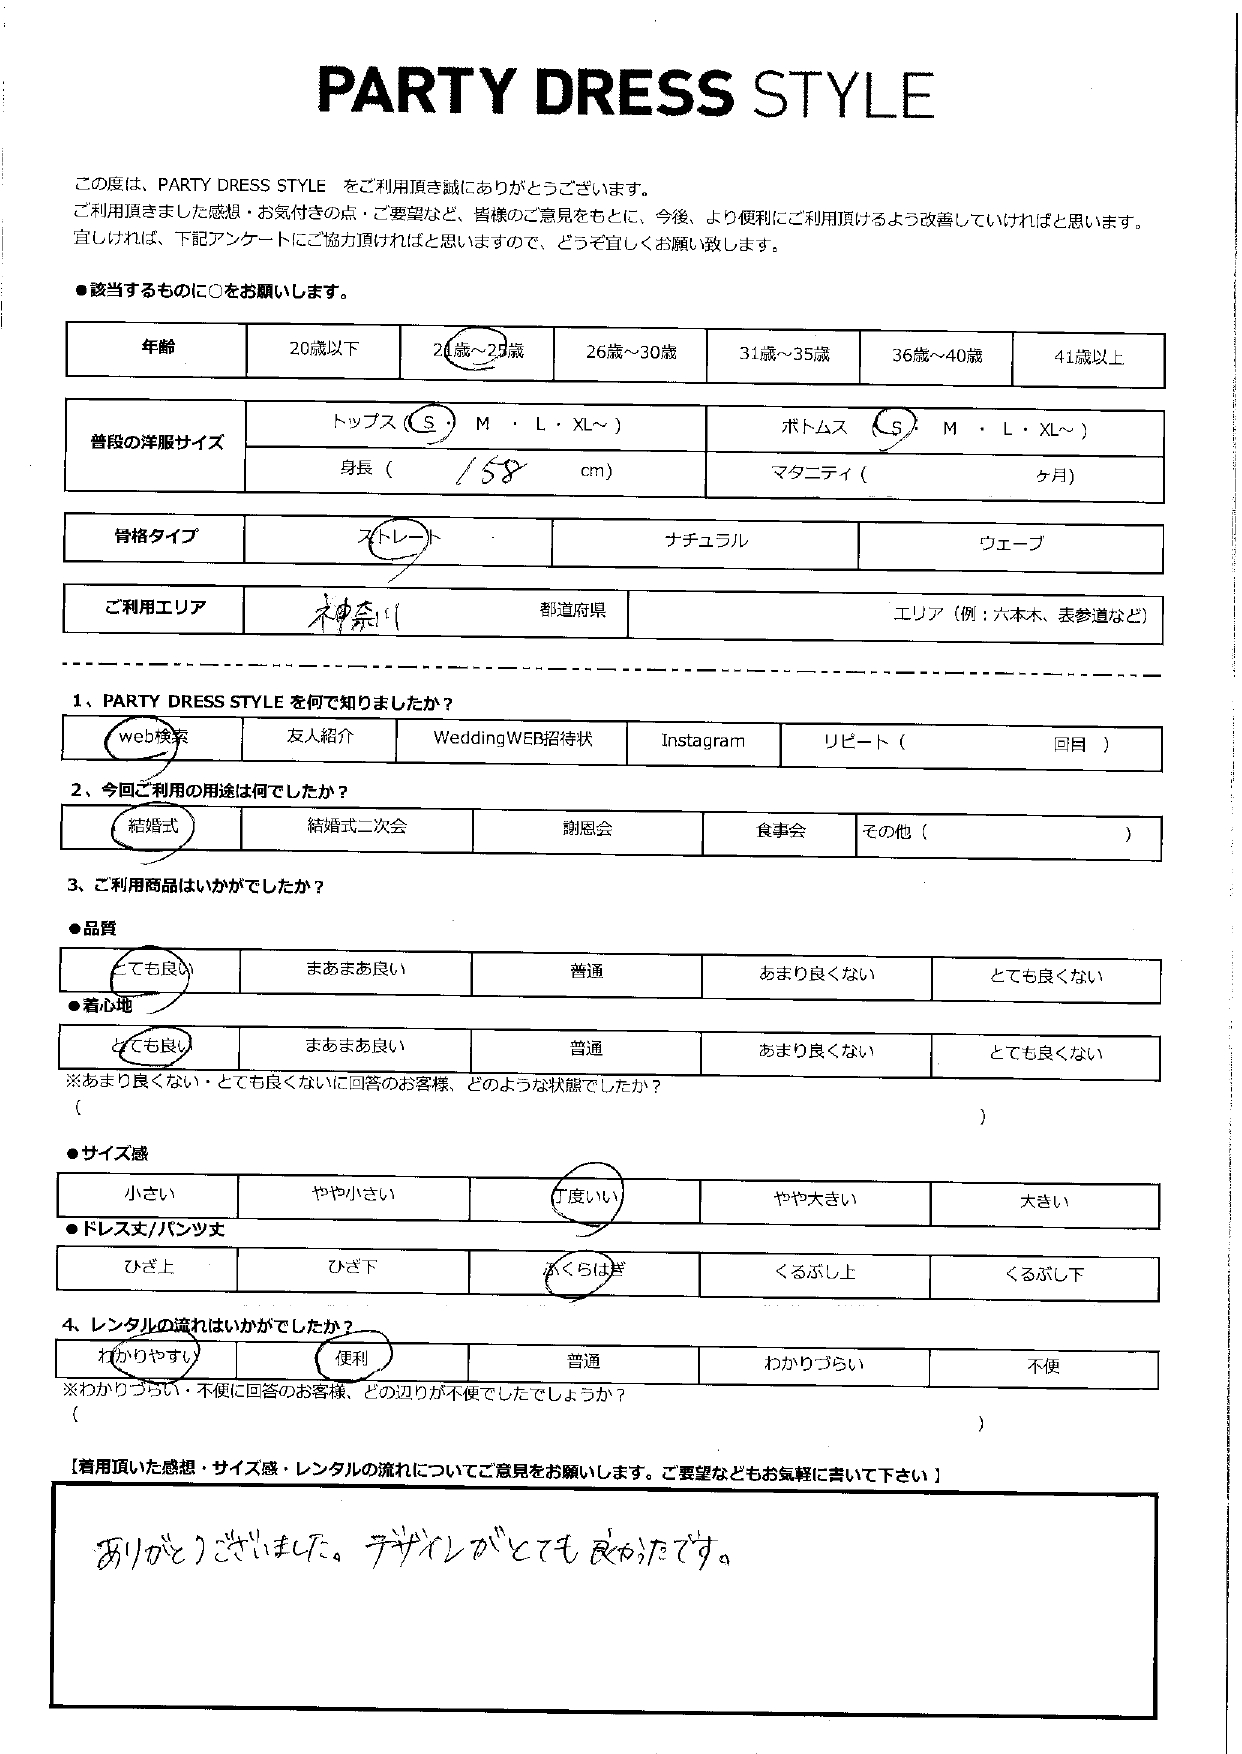 PARTY DRESS STYLE
この度は、PARTY DRESS STYLE をご利用頂き誠にありがとうございます。
ご利用頂きました感想・お気付きの点・ご要望など、皆様のご意見をもとに、今後、より便利にご利用頂けるよう改善していければと思います。
宜しければ、下記アンケートにご協力頂ければと思いますので、どうぞ宜しくお願い致します。
●該当するものに○をお願いします。
年齢 20歳以下 21歳～25歳 26歳～30歳 31歳～35歳 36歳～40歳 41歳以上
普段の洋服サイズ トップス (S・ M ・ L・ XL～ ) ボトムス (S・ M ・ L・ XL～ )
身長 ( 158 cm) マタニティ ( ヶ月)
骨格タイプ ストレート ナチュラル ウェーブ
ご利用エリア 神奈川 都道府県 エリア（例：六本木、表参道など）
1、PARTY DRESS STYLE を何で知りましたか？
web検索 友人紹介 WeddingWEB招待状 Instagram リピート ( 回目 )
2、今回ご利用の用途は何でしたか？
結婚式 結婚式二次会 謝恩会 食事会 その他 ( )
3、ご利用商品はいかがでしたか？
●品質
とても良い まあまあ良い 普通 あまり良くない とても良くない
●着心地
とても良い まあまあ良い 普通 あまり良くない とても良くない
※あまり良くない・とても良くないに回答のお客様、どのような状態でしたか？
( )
●サイズ感
小さい やや小さい 丁度いい やや大きい 大きい
●ドレス丈/パンツ丈
ひざ上 ひざ下 ふくらはぎ くるぶし上 くるぶし下
4、レンタルの流れはいかがでしたか？
わかりやすい 便利 普通 わかりづらい 不便
※わかりづらい・不便に回答のお客様、どの辺りが不便でしたでしょうか？
( )
【着用頂いた感想・サイズ感・レンタルの流れについてご意見をお願いします。ご要望などもお気軽に書いて下さい】
ありがとうございました。デザインがとても良かったです。